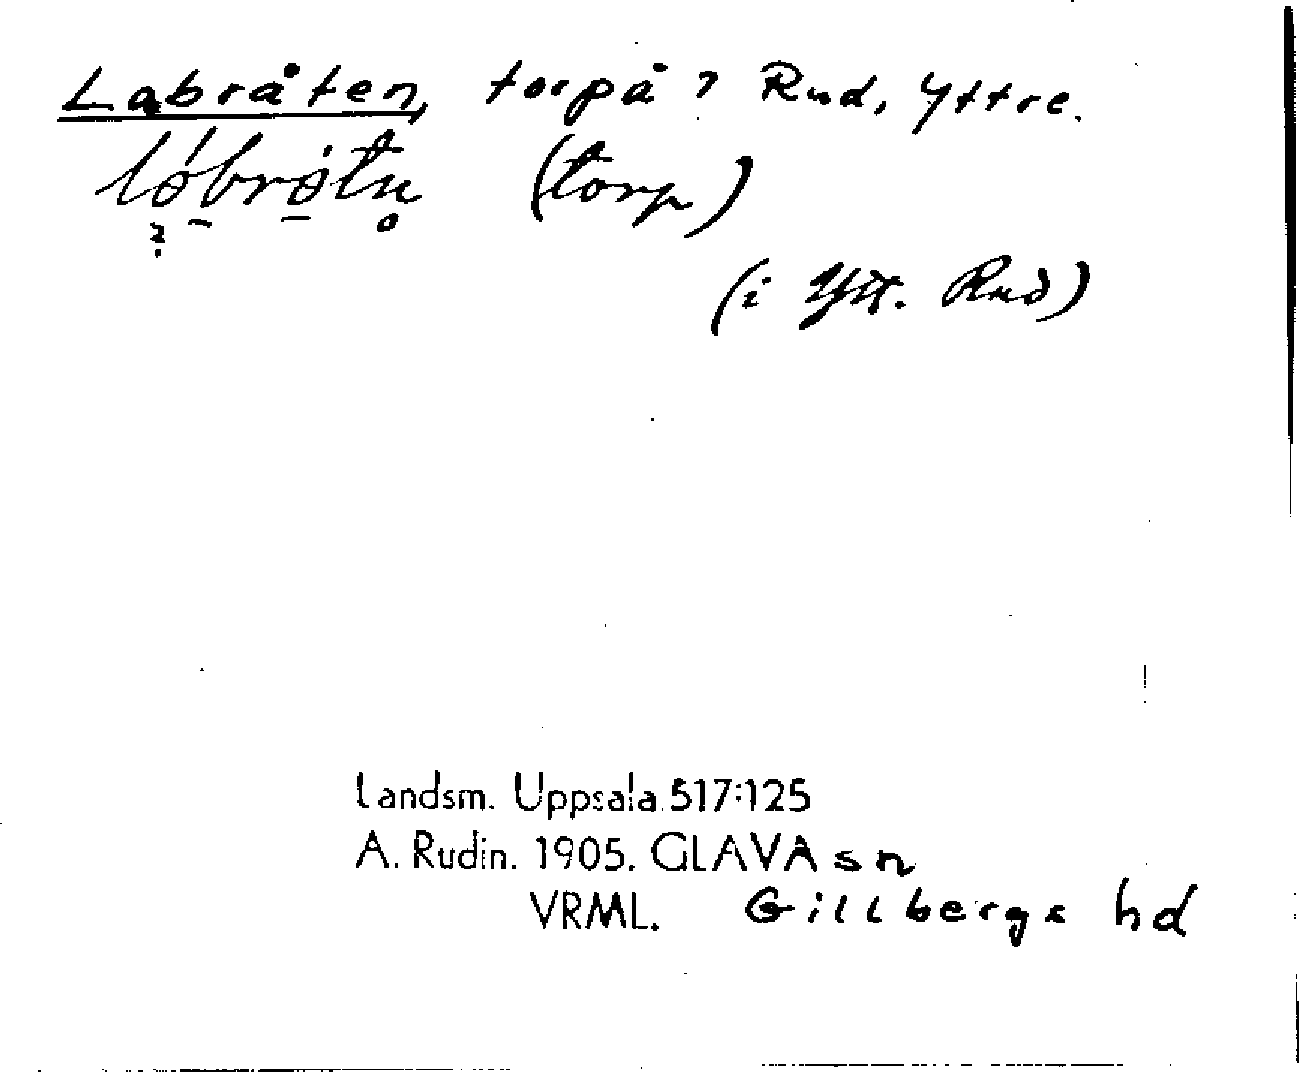 Labråten, torp å ? Rud, Yttre.
(torp)
(i Ytt. Rud)
Landsm. Uppsala 517:125
A. Rudin. 1905. GLAVA sn
VRML. Gillbergs hd